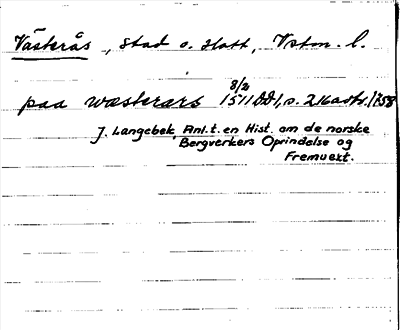 Västerås, stad o. slott, Vstm. l.
8/2
paa wæsterars 1511 DD1, s. 216 avtr. 1758
J. Langebek, Anl. t. en Hist. om de norske
Bergverkers Oprindelse og
Fremvext.